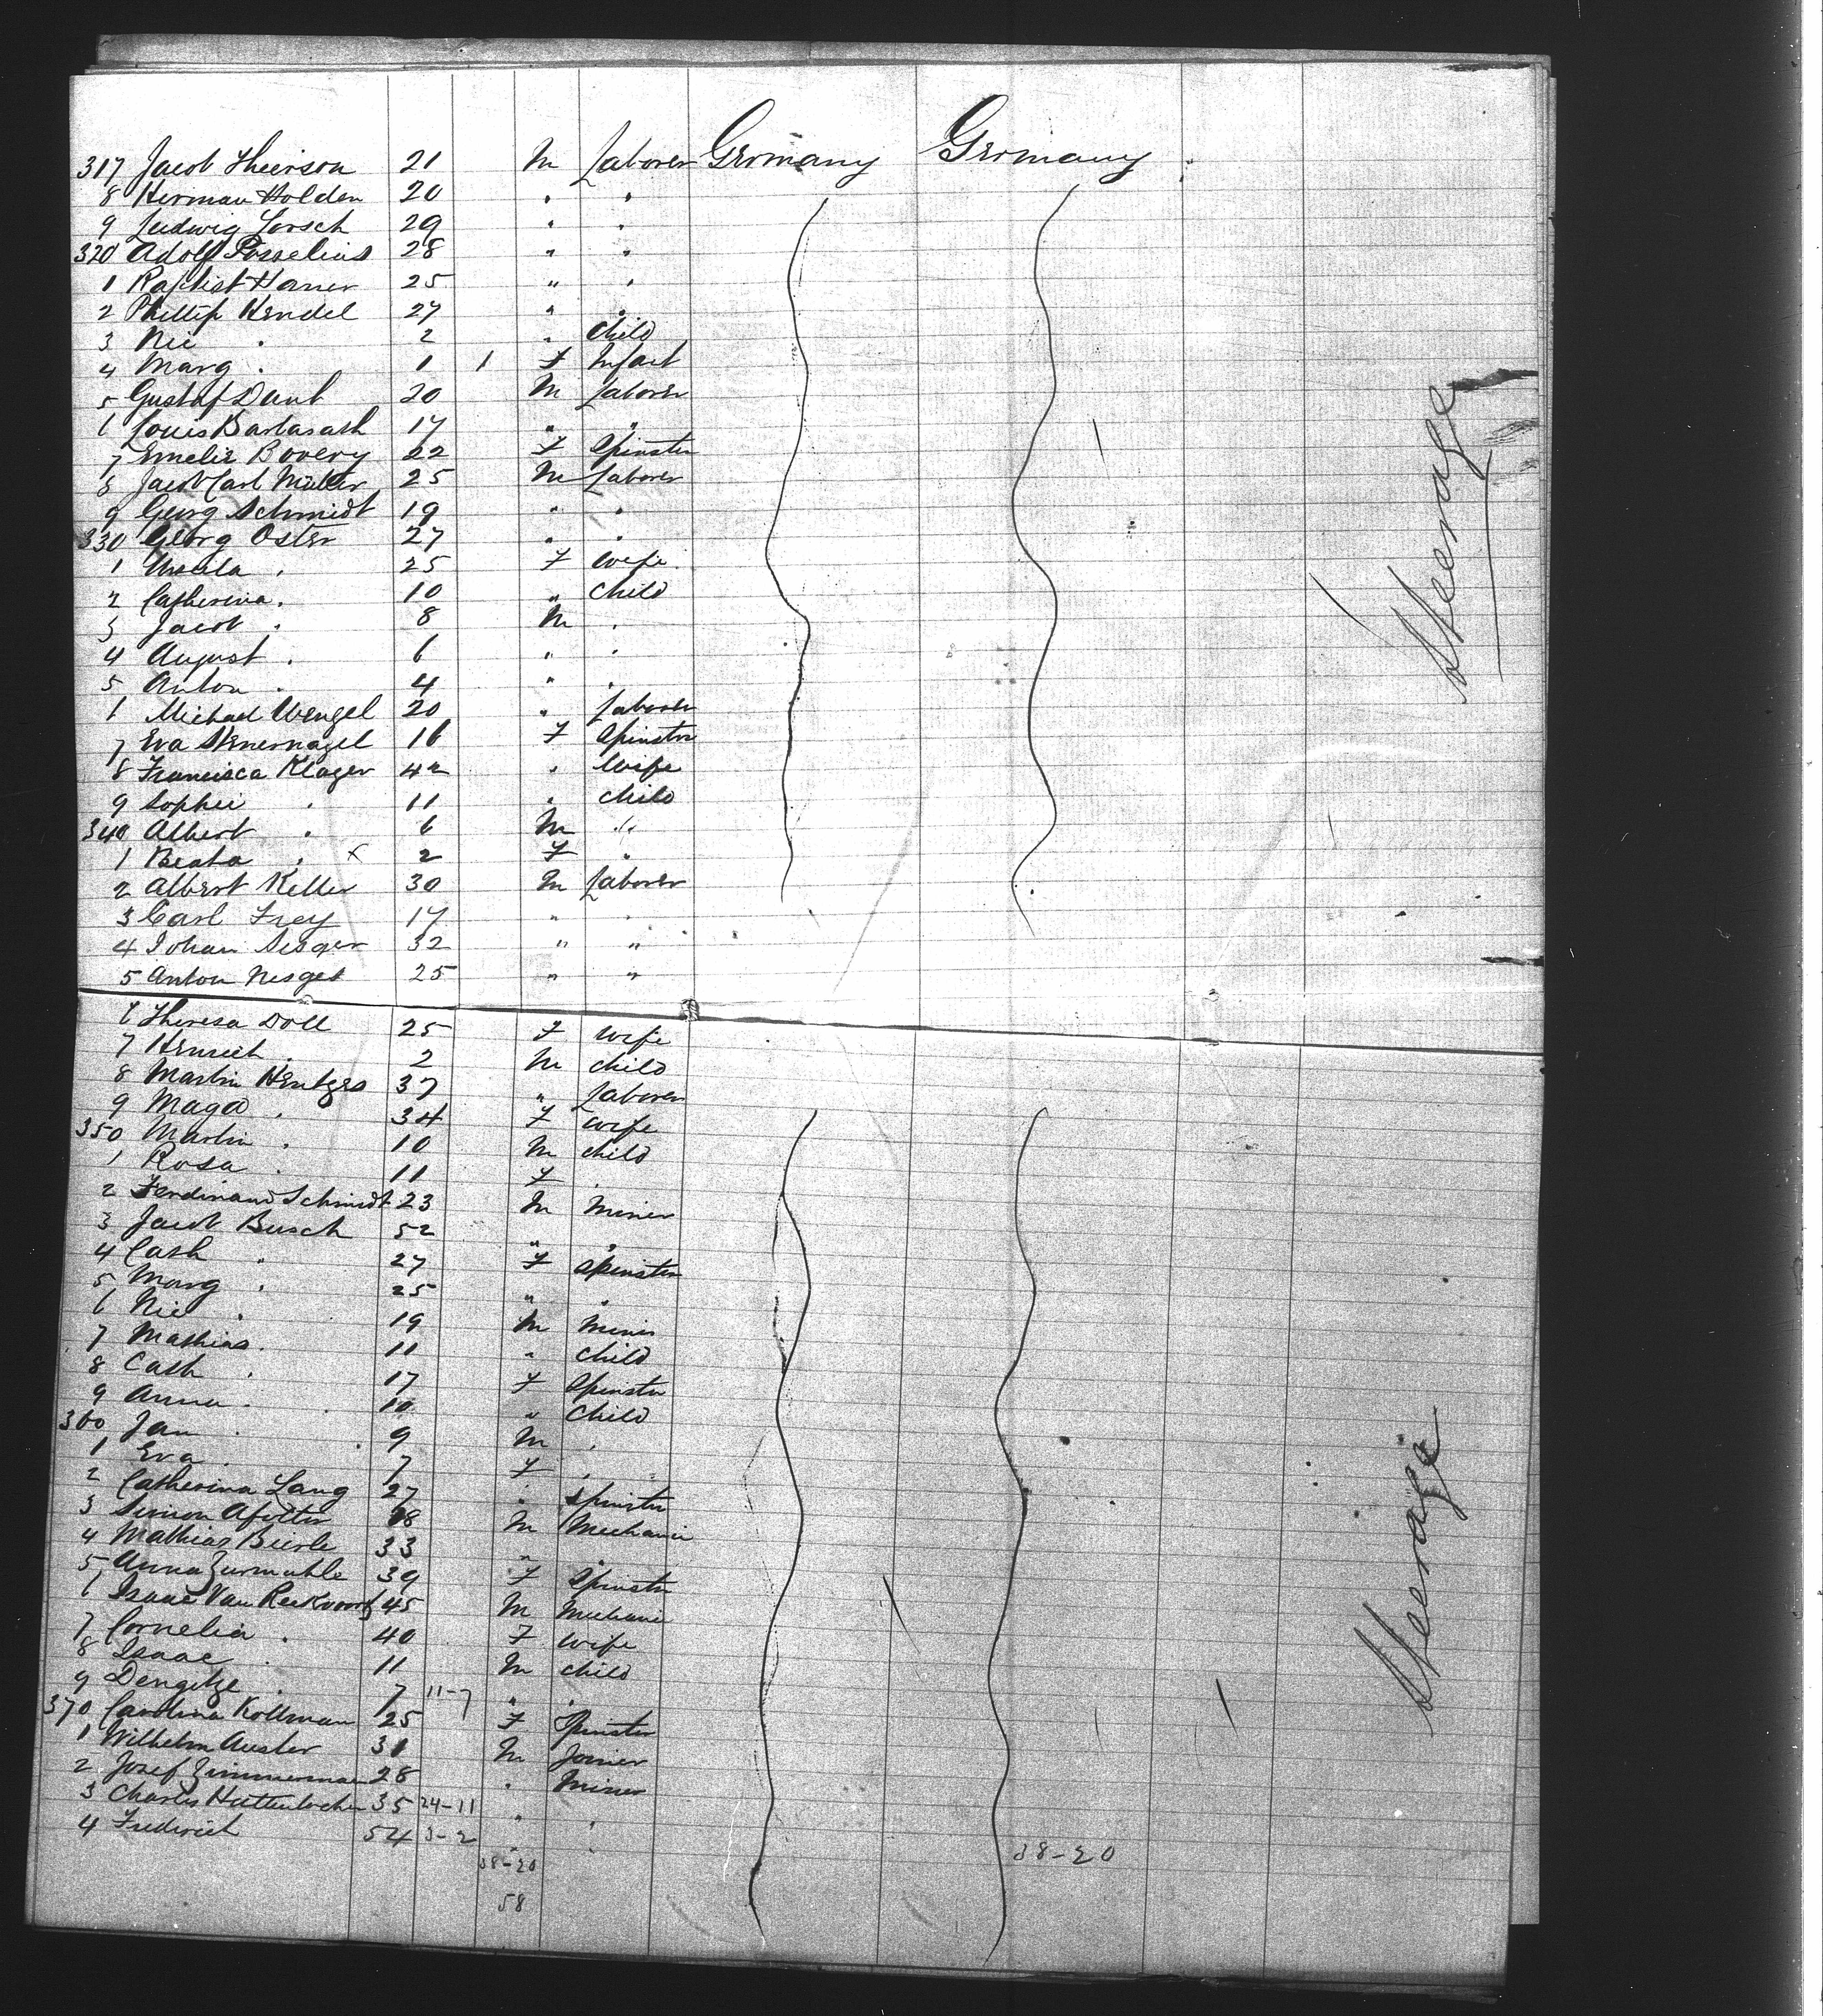 317 Jacob Thierson 21 M Laborer Germany Germany
8 Herman Holden 20 " "
9 Ludwig Lorsch 29 " "
320 Adolf Posselius 28 " "
1 Baptist Horner 25 " "
2 Phillip Hendel 27 " "
3 Nic " 2 " child
4 Marg " 1 1 F Infant
5 Gustaf Daub 20 M Laborer
6 Louis Barbarash 17 " "
7 Emelie Bovery 22 F Spinster
8 Jacob Carl Müller 25 M Laborer
9 Georg Schmidt 19 " "
330 Georg Oster 27 " "
1 " 25 F wife
2 Catherina " 10 " child
3 Jacob " 8 M "
4 August " 6 " "
5 Anton " 4 " "
6 Michael Wengel 20 " Laborer
7 Eva 16 F Spinster
8 Francisca Klager 42 " Wife
9 Sophie " 11 " child
340 Albert " 6 M "
1 Beata " x 2 F "
2 Albert Keller 30 M Laborer
3 Carl Frey 17 " "
4 Johan 32 " "
5 Anton Nesges 25 " "
6 Theresa Doll 25 F wife
7 Henrich " 2 M child
8 Martin Hentges 37 " Laborer
9 Magd " 34 F wife
350 Martin " 10 M child
1 Rosa " 11 F "
2 Ferdinand Schmidt 23 M Miner
3 Jacob Busch 52 " "
4 Cath " 27 F Spinster
5 Marg " 25 " "
6 Nic " 19 M Miner
7 Mathias " 11 " child
8 Cath " 17 F Spinster
9 Anna " 10 " child
360 Jan " 9 M "
1 Eva " 7 F "
2 Catherina Lang 27 " Spinster
3 Simon Afolter 18 M Mechanic
4 Mathias Buerle 33 " "
5 Anna Zurmuhle 39 F Spinster
6 Isaac Van 45 M Mechanic
7 Cornelia " 40 F wife
8 Isaac " 11 M child
9 " 7 11-7 " "
370 Carolina Kollman 25 F Spinster
1 Wilhelm Auster 31 M Joiner
2 Josef Zimmerman 28 " Miner
3 Charles Huttenlocher 35 24-11 " "
4 Frederick 54 3-2 " "
38-20 38-20
58
Steerage
Steerage